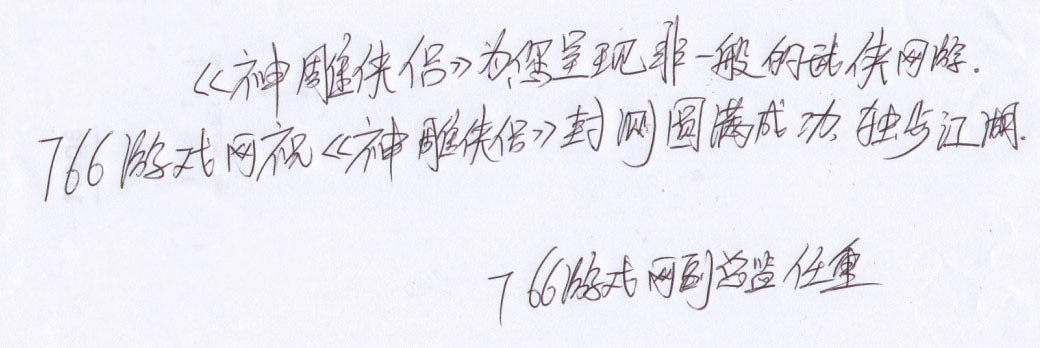 《神雕侠侣》为您呈现非一般的武侠网游.
766游戏网祝《神雕侠侣》封测圆满成功,独步江湖.
766游戏网副总监任重